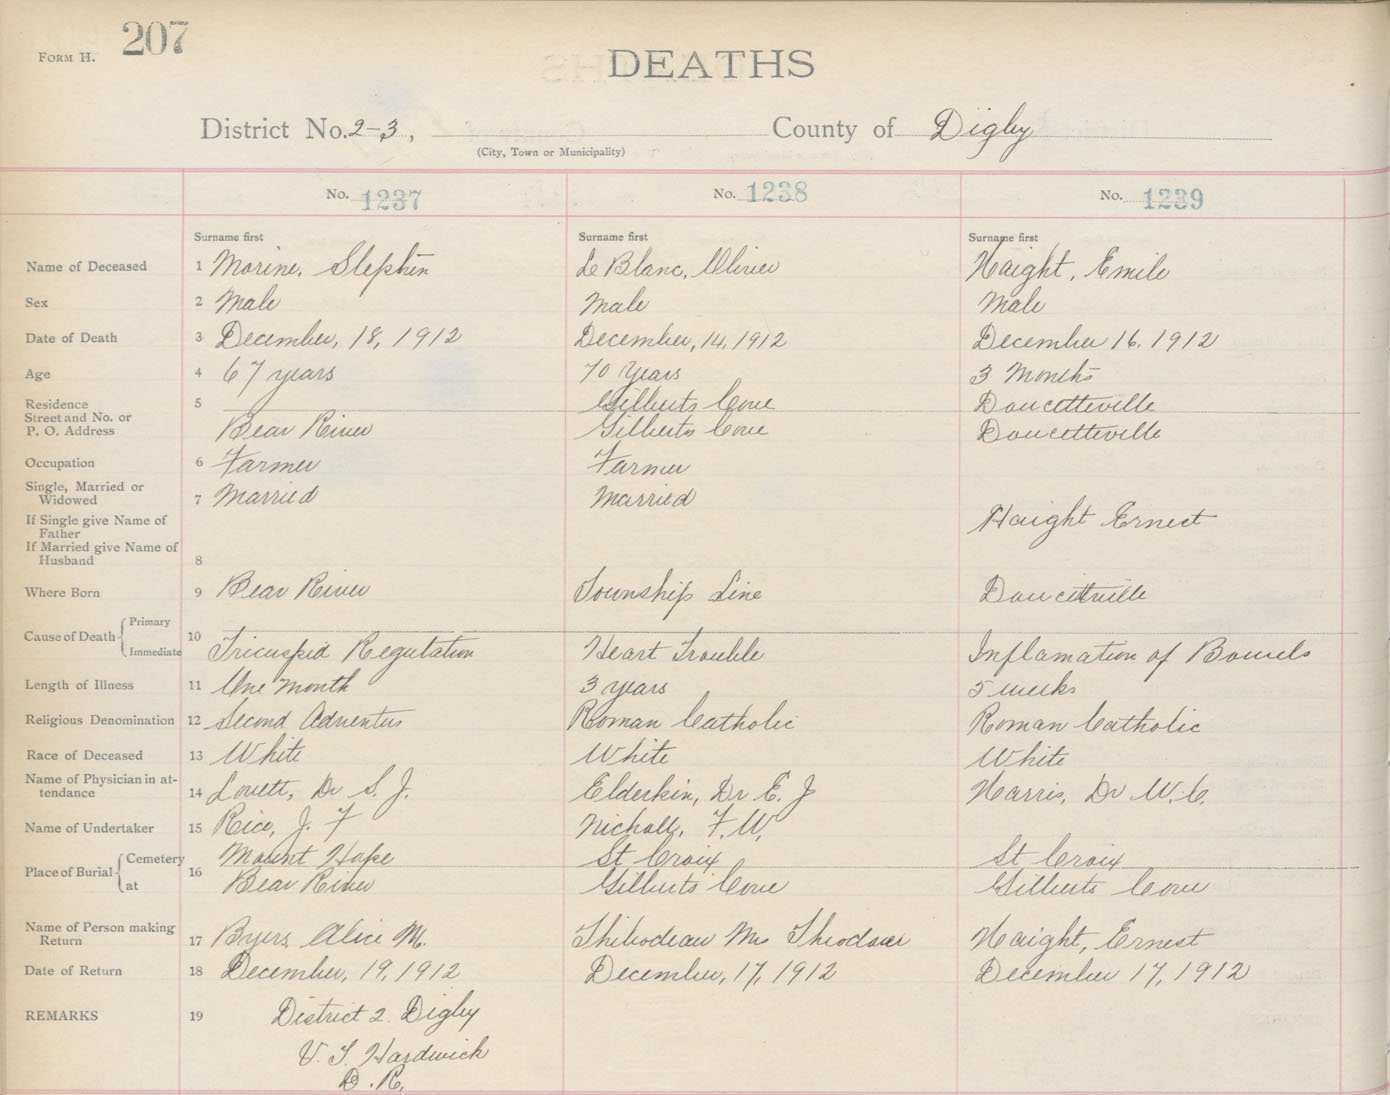 FORM H. 207
DEATHS
District No. 2-3, County of Digby
(City, Town or Municipality)
No. 1237 No. 1238 No. 1239
Surname first Surname first Surname first
Name of Deceased 1 Morine, Stephen Le Blanc, Olivier Haight, Emile
Sex 2 Male Male Male
Date of Death 3 December, 18, 1912 December, 14, 1912 December 16, 1912
Age 4 67 years 70 Years 3 Months
Residence 5 Gilberts Cove Doucetteville
Street and No. or
P. O. Address Bear River Gilberts Cove Doucetteville
Occupation 6 Farmer Farmer
Single, Married or
Widowed 7 Married Married
If Single give Name of
Father Haight Ernest
If Married give Name of
Husband 8
Where Born 9 Bear River Township Line Doucetteville
Cause of Death Primary
10
Immediate Tricuspid Regutation Heart Trouble Inflamation of Bowels
Length of Illness 11 One Month 3 years 5 weeks
Religious Denomination 12 Second Adventus Roman Catholic Roman Catholic
Race of Deceased 13 White White White
Name of Physician in at-
tendance 14 Lovett, Dr S. J. Elderkin, Dr E. J Harris, Dr W. C.
Name of Undertaker 15 Rice, J. F Nicholl, F. W.
Place of Burial Cemetery 16 Mount Hope St Croix St Croix
at Bear River Gilberts Cove Gilberts Cove
Name of Person making
Return 17 Byers, Alice M. Thibodeau Mrs Haight, Ernest
Date of Return 18 December, 19, 1912 December, 17, 1912 December 17, 1912
REMARKS 19 District 2. Digby
V. T. Hardwick
D. R.